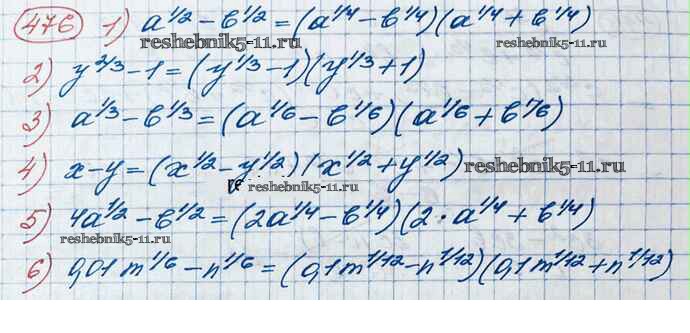 476 1) a^1/2 - b^1/2 = (a^1/4 - b^1/4)(a^1/4 + b^1/4)
reshebnik5-11.ru reshebnik5-11.ru
2) y^2/3 - 1 = (y^1/3 - 1)(y^1/3 + 1)
3) a^1/3 - b^1/3 = (a^1/6 - b^1/6)(a^1/6 + b^1/6)
4) x - y = (x^1/2 - y^1/2)(x^1/2 + y^1/2) reshebnik5-11.ru
reshebnik5-11.ru
5) 4a^1/2 - b^1/2 = (2a^1/4 - b^1/4)(2·a^1/4 + b^1/4)
reshebnik5-11.ru
6) 0,01m^1/6 - n^1/6 = (0,1m^1/12 - n^1/12)(0,1m^1/12 + n^1/12)